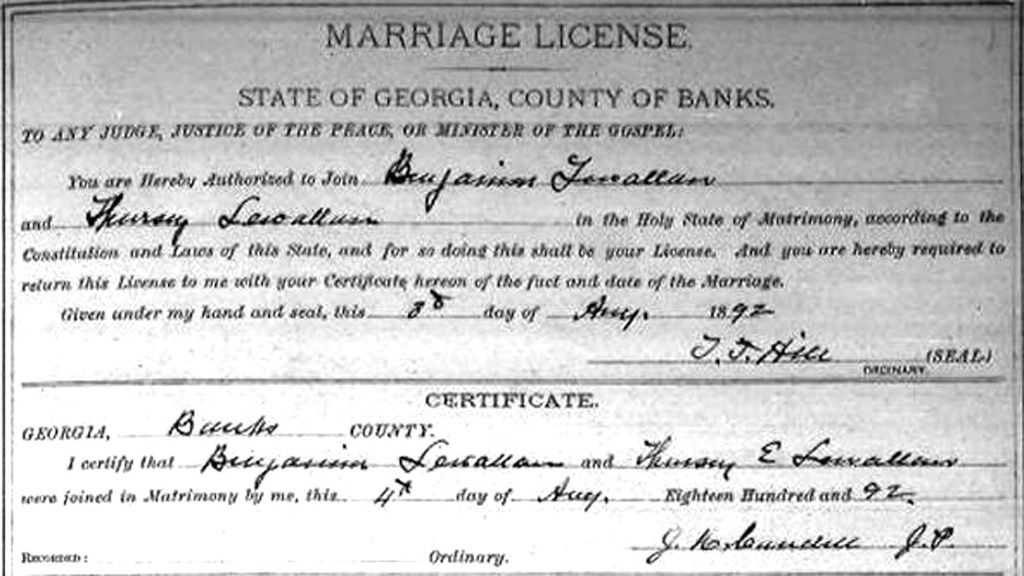 MARRIAGE LICENSE.
STATE OF GEORGIA, COUNTY OF BANKS.
TO ANY JUDGE, JUSTICE OF THE PEACE, OR MINISTER OF THE GOSPEL:
You are Hereby Authorized to Join Benjamin Lewallan
and Thursy Lewallan in the Holy State of Matrimony, according to the
Constitution and Laws of this State, and for so doing this shall be your License. And you are hereby required to
return this License to me with your Certificate hereon of the fact and date of the Marriage.
Given under my hand and seal, this 3d day of Aug. 1892
T. F. Hill (SEAL)
ORDINARY.
CERTIFICATE.
GEORGIA, Banks COUNTY.
I certify that Benjamin Lewallan and Thursy E Lewallan
were joined in Matrimony by me, this 4th day of Aug. Eighteen Hundred and 92.
J. P.
RECORDED: Ordinary.